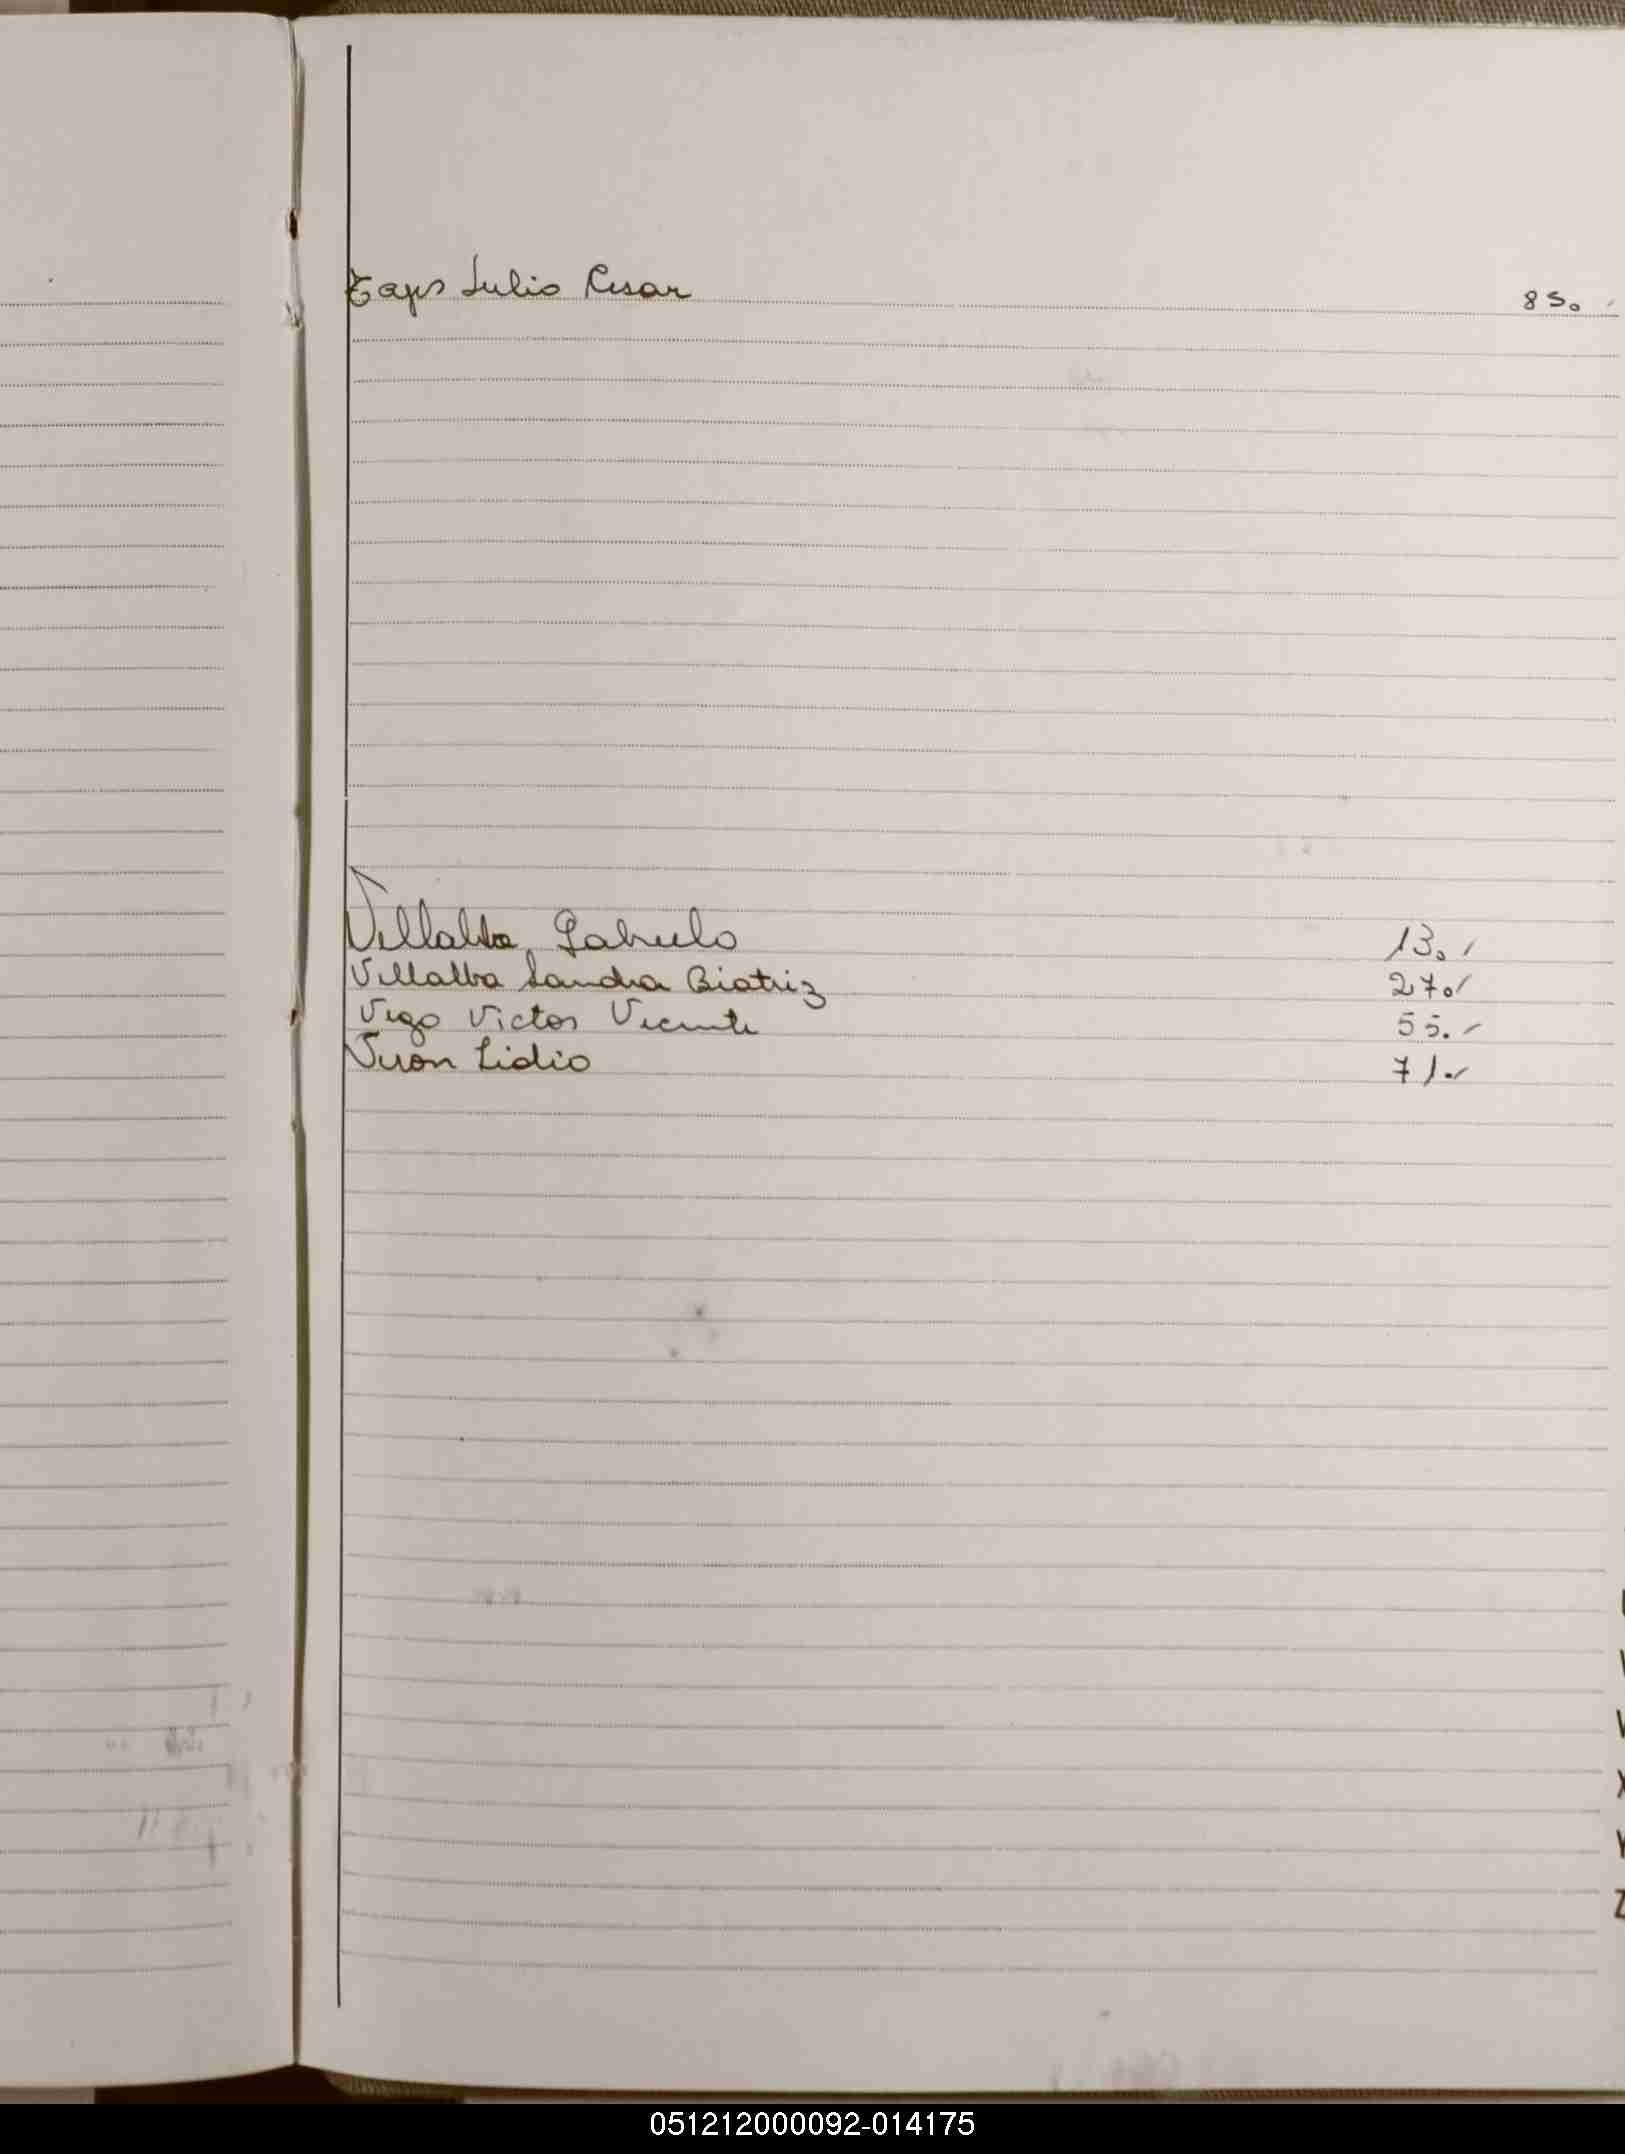 Tayes Julio Cesar 85.
Villalba Gabrielo 13.
Villalba Sandra Beatriz 27.
Vego Victor Vicente 55.
Veron Lidio 71.
X
Y
Z
051212000092-014175